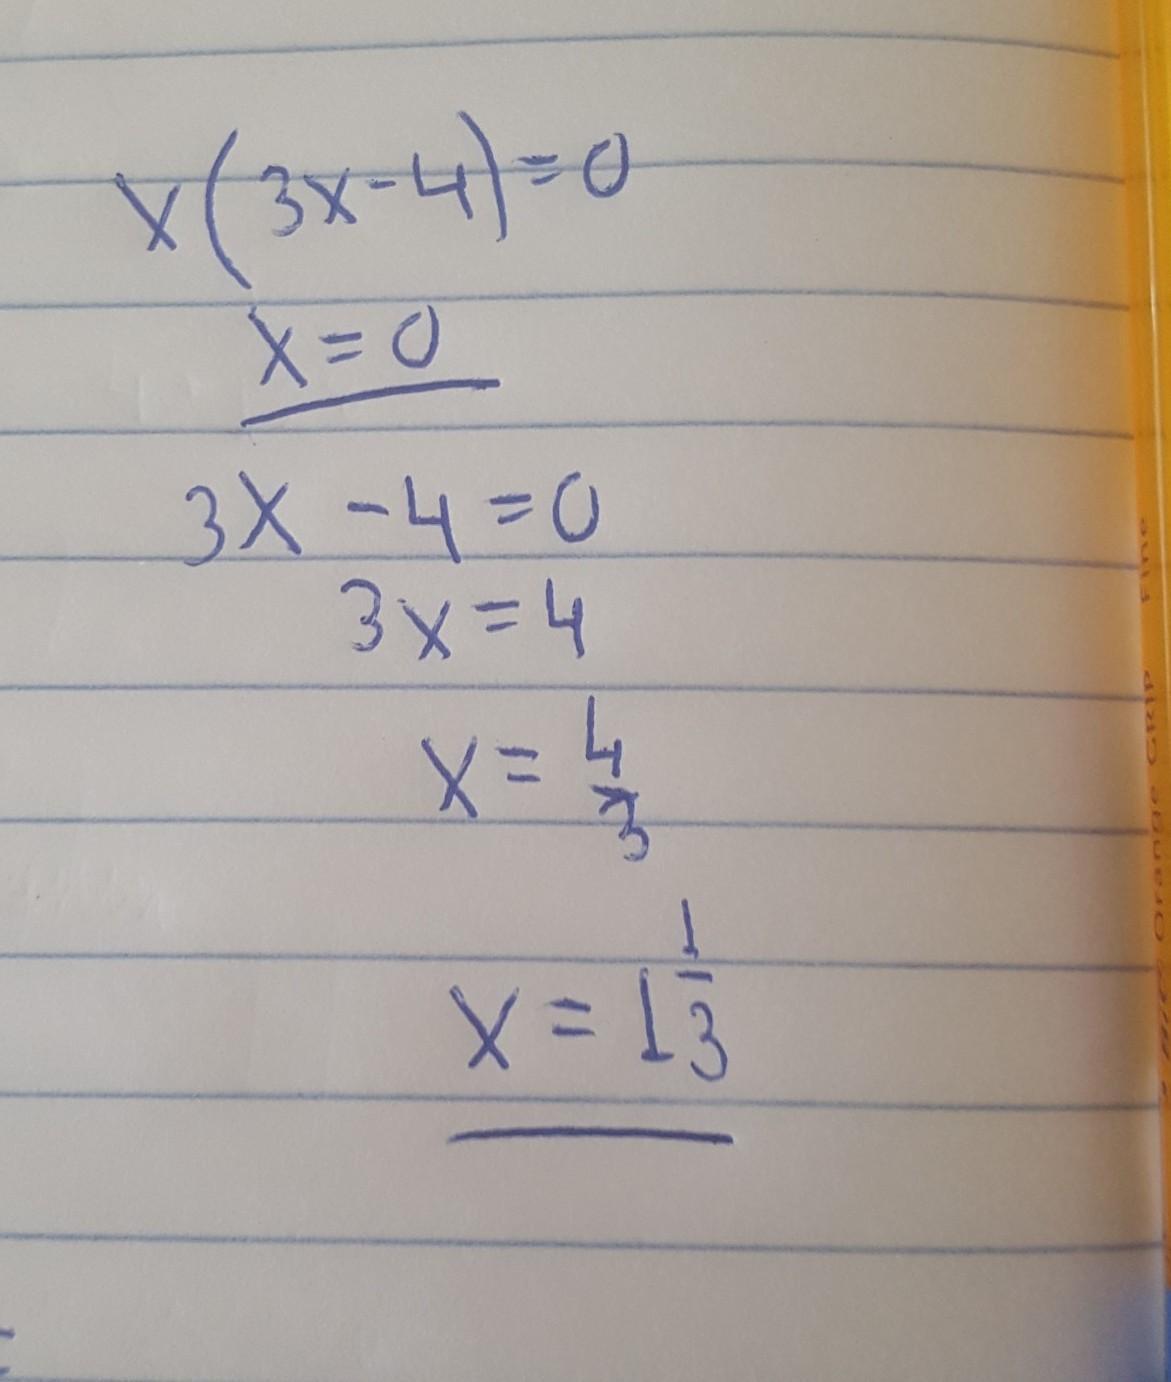 x(3x-4)=0
x=0
3x -4=0
3x=4
x=4/3
x=1 1/3
Orange GRIP Fine